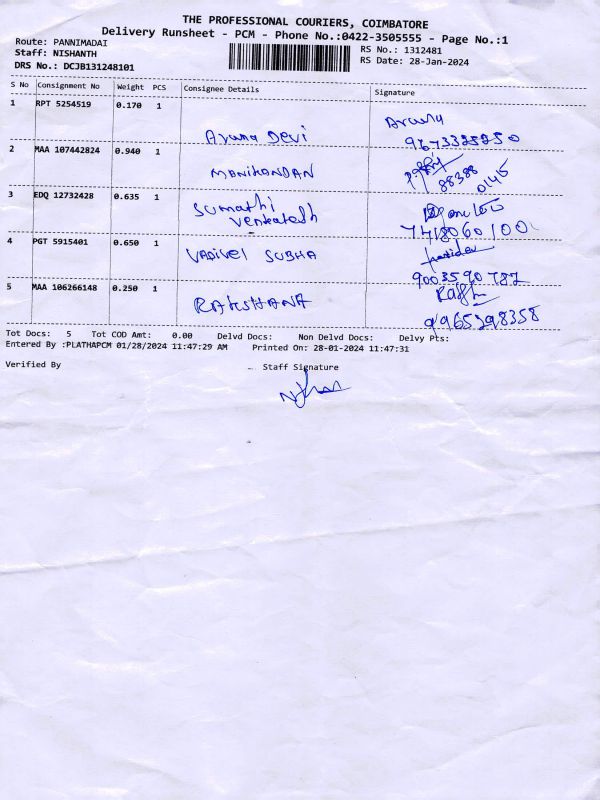 THE PROFESSIONAL COURIERS, COIMBATORE
Delivery Runsheet - PCM - Phone No.:0422-3505555 - Page No.:1
Route: PANNIMADAI
RS No.: 1312481
Staff: NISHANTH
RS Date: 28-Jan-2024
DRS No.: DCJB131248101
S No Consignment No Weight PCS Consignee Details Signature
1 RPT 5254519 0.170 1
Aruna
Aruna Devi 9673325250
2 MAA 107442824 0.940 1
MANIKANDAN 88388 01415
3 EDQ 12732428 0.635 1
Sumathi
Venkatesh
4 PGT 5915401 0.650 1
VADIVEL SUBHA
9003590782
5 MAA 106266148 0.250 1
RAKSHANA
9965298358
Tot Docs: 5 Tot COD Amt: 0.00 Delvd Docs: Non Delvd Docs: Delvy Pts:
Entered By :PLATHAPCM 01/28/2024 11:47:29 AM Printed On: 28-01-2024 11:47:31
Verified By Staff Signature